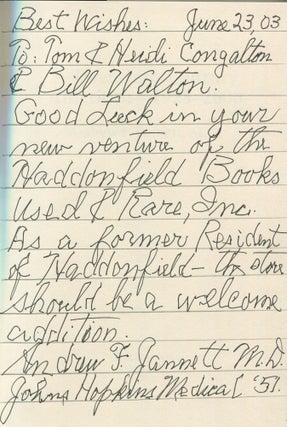 Best Wishes: June 23, 03
To: Tom & Heidi Congalton
& Bill Walton.
Good Luck in your
new venture of the
Haddonfield Books
Used & Rare, Inc.
As a former Resident
of Haddonfield - the store
should be a welcome
addition.
Andrew F. Jannett M.D.
Johns Hopkins Medical '51.